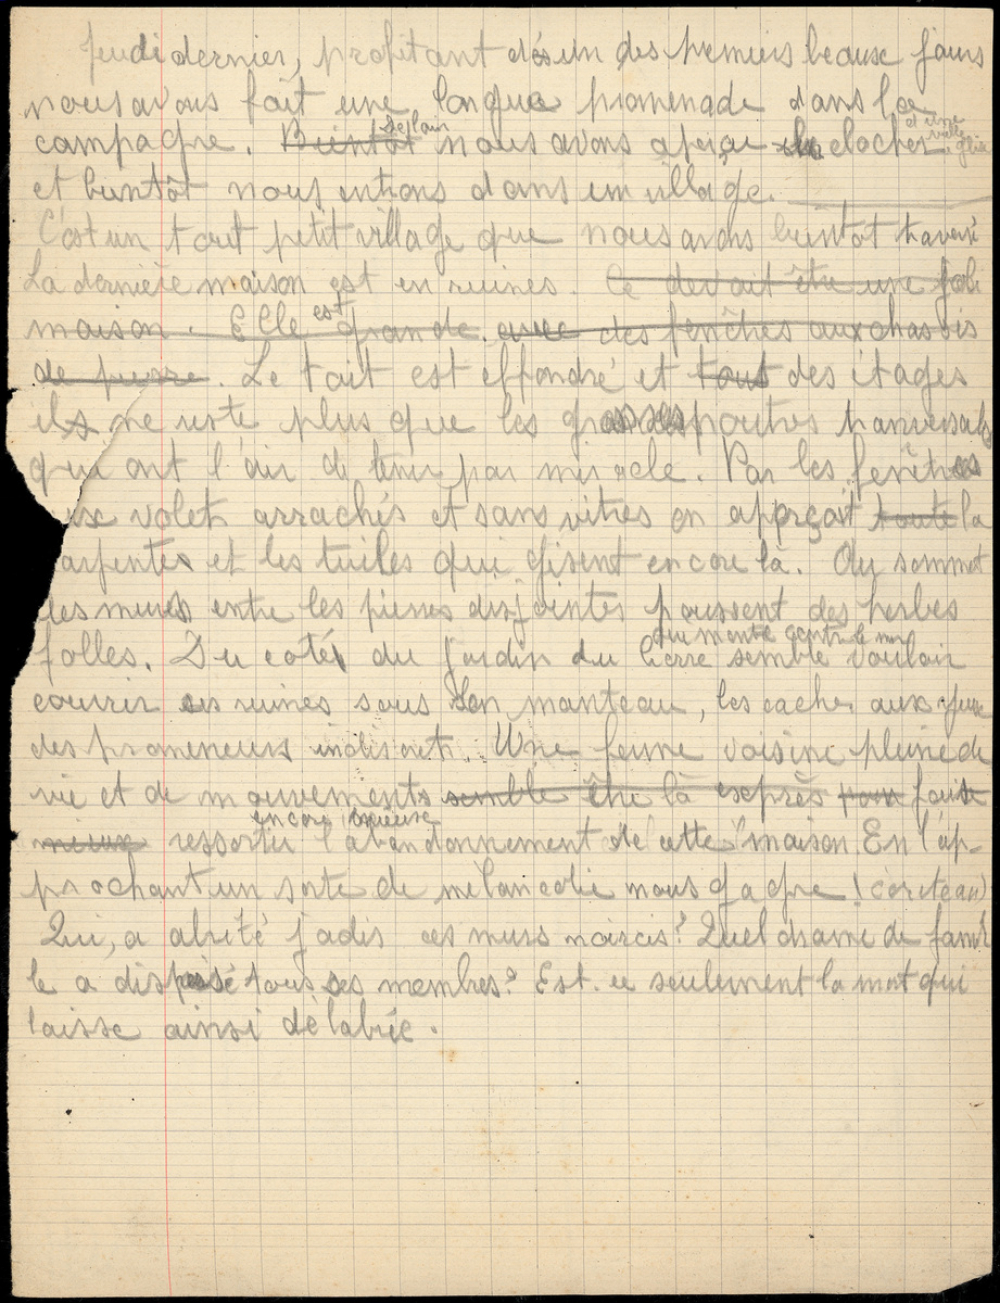 Jeudi dernier, profitant dés un des premiers beaux jours
nous avons fait une longue promenade dans la
campagne. Bientôt De loin nous avons aperçu le clocher d'une vieille église
et bientôt nous entrons dans un village.
C'est un tout petit village que nous avons bientôt traversé
La dernière maison est en ruines. Ce devait être une joli
maison. Elle est grande avec des fenêtres aux chassis
de pierre. Le toit est effondré et tous des étages
ils ne reste plus que les grosses poutres tranversales
qui ont l'air de tenir par miracle. Par les fenêtres
aux volets arrachés et sans vitres on apperçoit toute la
arpentes et les tuiles qui gisent encore là. Au sommet
des murs entre les pierres disjointes poussent des herbes
folles. Du coté du jardin du lierre qui monte contre le mur semble vouloir
couvrir ces ruines sous son manteau, les cacher aux yeux
des promeneurs indiscrets. Une ferme voisine pleine de
vie et de mouvements semble être là exprès pour faire
mieux ressortir encore l'abandonnement de cette maison. En l'ap-
prochant un sorte de mélancolie nous gagne !
Qui, a abrité jadis ces murs noircis? Quel drame de famil
le a dispersé tous ses membres? Est-ce seulement la mort qui
laisse ainsi délabrée.